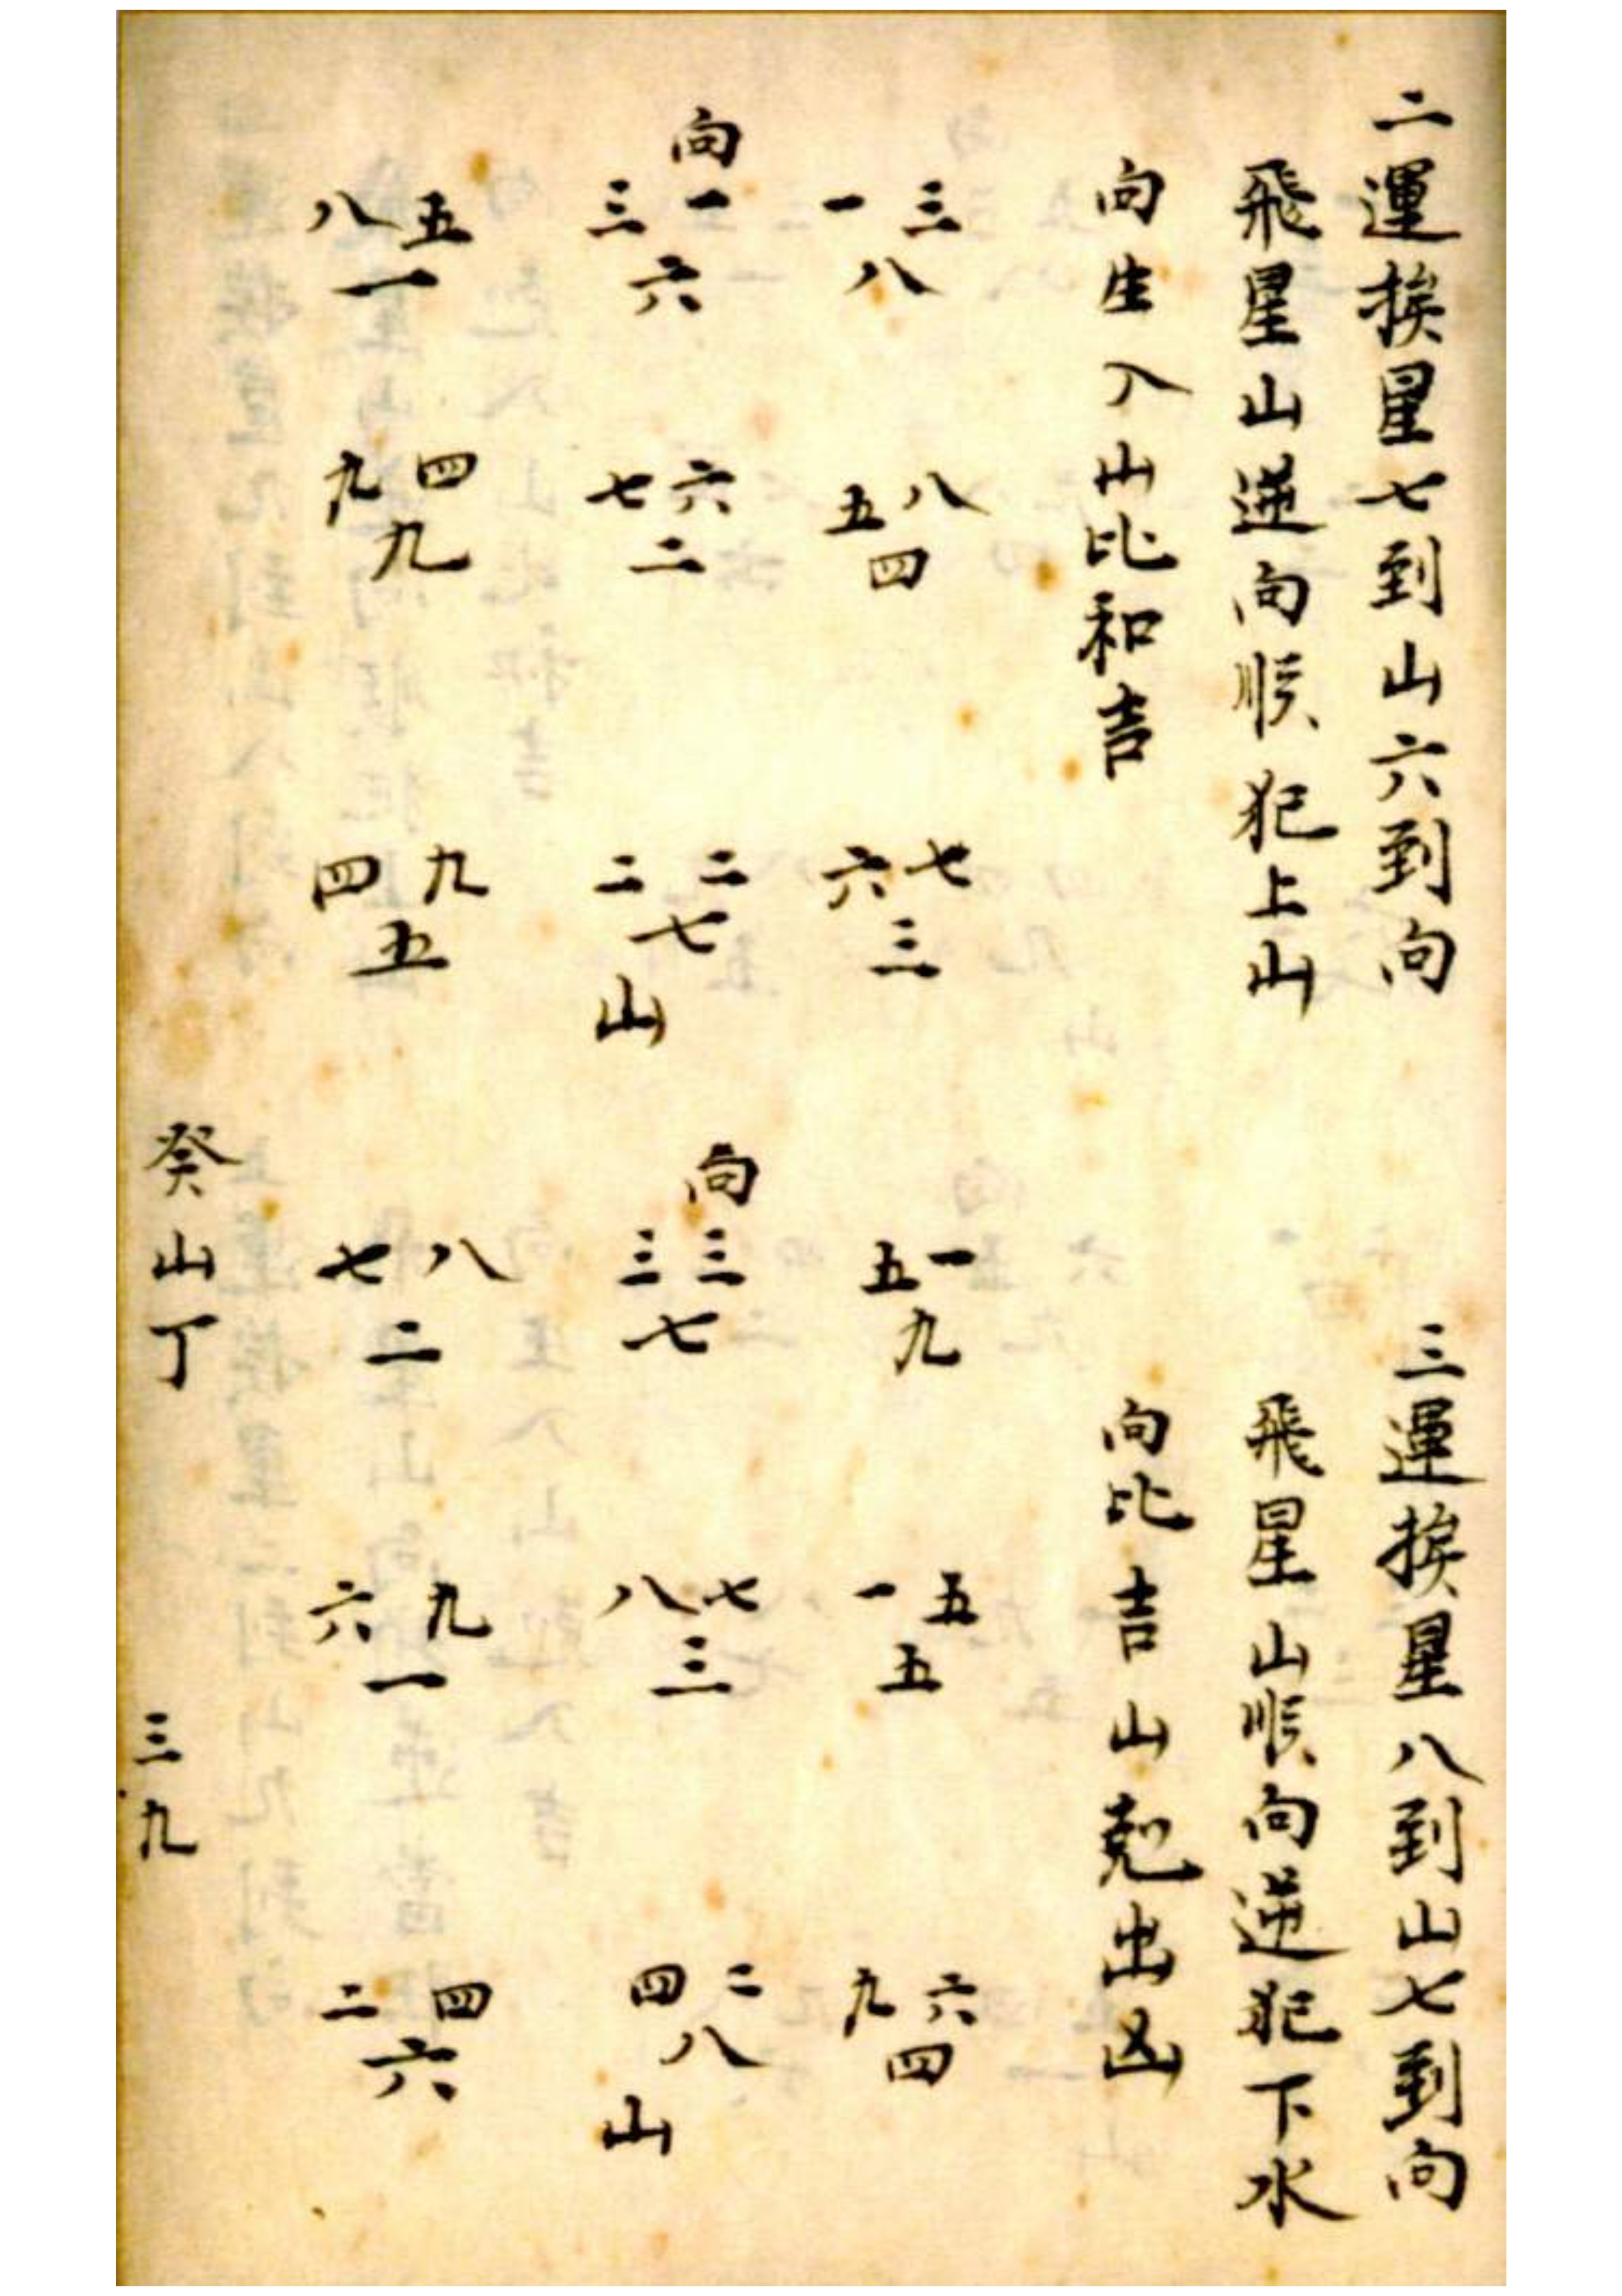 二運挨星七到山六到向
飛星山逆向順犯上山
向生入山比和吉
向
八五 三一 一三
一 六 八
九四 七六 五八
九 二 四
四九 二二 六七
五 七 三
山
三運挨星八到山七到向
飛星山順向逆犯下水
向比吉山剋出凶
向
七八 三三 五一
二 七 九
六九 八七 一五
一 三 五
二四 四二 九六
六 八 四
山
癸山丁
三九